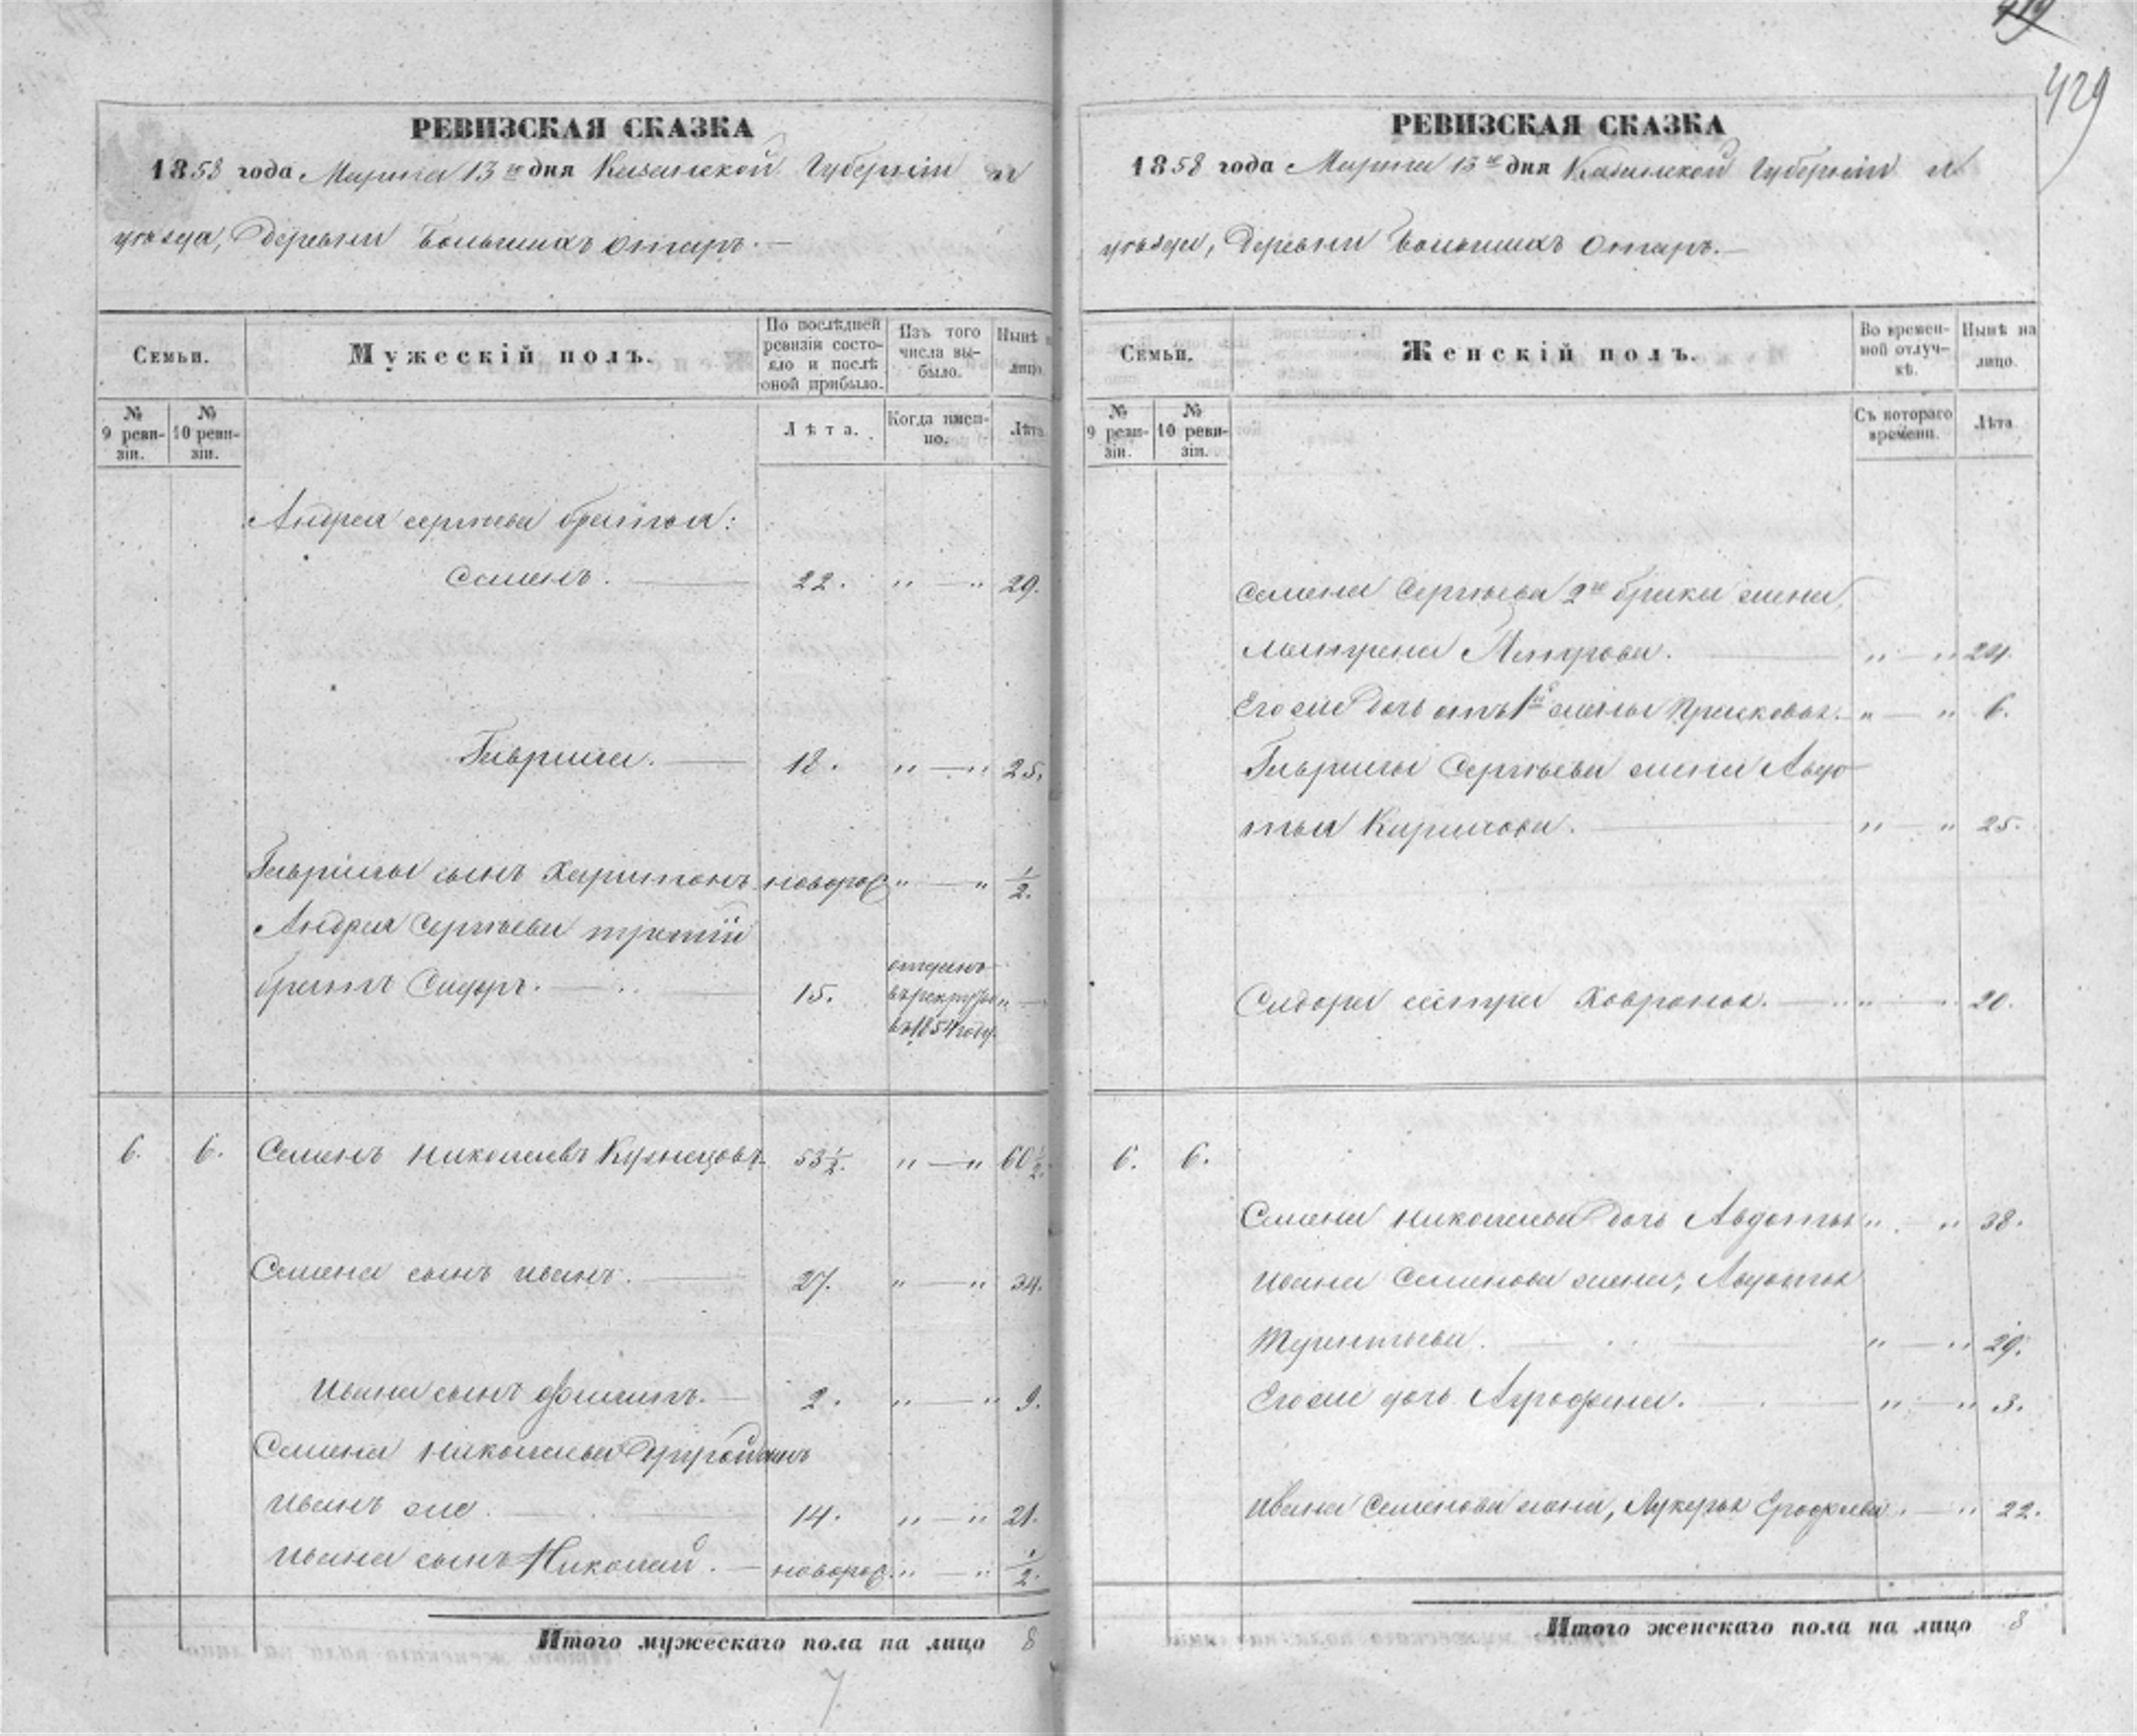 419
429
РЕВИЗСКАЯ СКАЗКА
1858 года Марта 13го дня Казанской Губерніи и
уѣзда, Деревни Большихъ Отаръ.
Семьи.
Мужескій полъ.
По послѣдней ревизіи состояло и послѣ оной прибыло.
Изъ того числа выбыло.
Нынѣ на лицо.
№ 9 ревизіи.
№ 10 ревизіи.
Лѣта.
Когда именно.
Лѣта
Андрея сергѣева братья:
Семенъ. 22. " — " 29.
Гаврила. 18. " — " 25.
Гаврилы сынъ Харитонъ новорож " — " 1/2.
Андрея Сергѣева третій
братъ Сидоръ. 15. отданъ въ рекруты въ 1854 году. " —
6. 6. Семенъ Николаевъ Кузнецовъ 53 1/2. " — " 60 1/2.
Семена сынъ Иванъ. 27. " — " 34.
Ивана сынъ Филипъ. 2. " — " 9.
Семена Николаева другой сынъ
Иванъ же. 14. " — " 21.
Ивана сынъ Николай. новорож. " — " 1/2.
Итого мужескаго пола на лицо 8
7
РЕВИЗСКАЯ СКАЗКА
1858 года Марта 13го дня Казанской Губерніи и
уѣзда, Деревни Большихъ Отаръ.
Семьи.
Женскій полъ.
Во временной отлучкѣ.
Нынѣ на лицо.
№ 9 ревизіи.
№ 10 ревизіи.
Съ котораго времени.
Лѣта
Семена Сергѣева 2го брака жена,
Матрена Петрова. " — " 24.
Его же дочь отъ 1й жены Прасковья. " — " 6.
Гаврилы Сергѣева жена Авдо
тья Кирилова. " " 25.
Сидора сестра Хавронья. " — " 20.
6. 6.
Семена Николаева дочь Авдотья " — " 38.
Ивана Семенова жена, Авдотья
Терентьева. " — " 29.
Его же дочь Агрофина. " — " 3.
Ивана Семенова жена, Лукерья Ерофеева. — " 22.
Итого женскаго пола на лицо 8